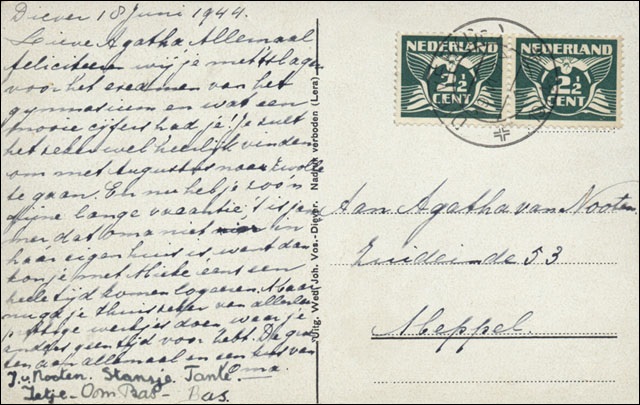 Diever 18 Juni 1944.
Lieve Agatha Allemaal
feliciteren wij je met 't slagen
voor het examen van het
gymnasium en wat een
mooie cijfers had je! Je zult
het zeker wel heerlijk vinden
om met Augustus naar Zwolle
te gaan. En nu heb je zoon
fijne lange vacantie, 't is jam
mer dat Oma niet in
haar eigen huis is, want dan
kon je met Mieke eens een
heele tijd komen logeeren. Maar
nu zult je thuis zeker van allerlei
prettige werkjes doen, waar je
anders geen tijd voor hebt. De groe
ten aan allemaal en een kus van
Oma.
J. v. Nooten. Stansje. Tante
Jetje - Oom Bas - Bas.
Uitg. Wed. Joh. Vos.-Diever. Nadruk verboden (Lera)
NEDERLAND
2½
CENT
NEDERLAND
2½
CENT
Aan Agatha van Nooten
Zuideinde 53
Meppel.